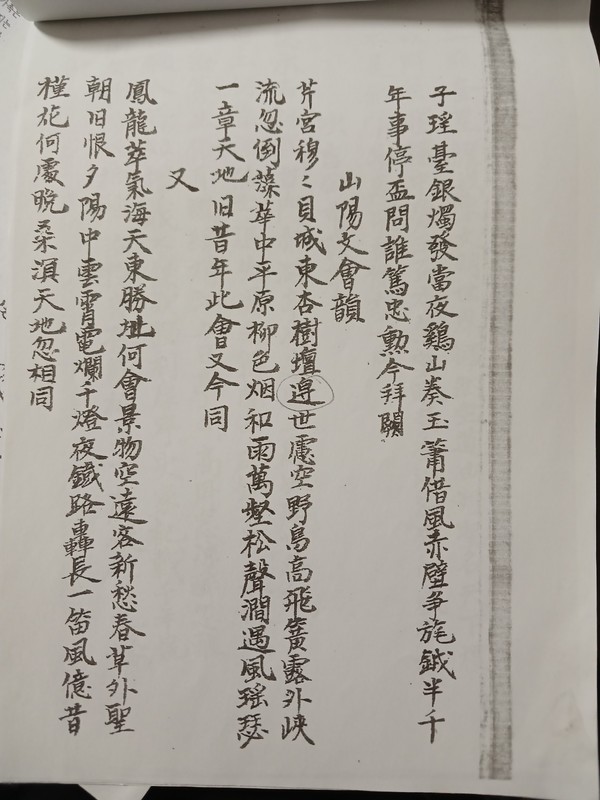 子瑤臺銀燭發當夜鷄山奏玉簫借風赤壁爭旄鉞半千
年事停盃問誰篤忠勳今拜闕
山陽文會韻
芹宮穆〻貝城東杏樹壇邊世慮空野鳥高飛簧露外峽
流忽倒藻華中平原柳色烟和雨萬壑松聲澗遇風瑤瑟
一章天地旧昔年此會又今同
又
鳳龍萃氣海天東勝址何會景物空遠客新愁春草外聖
朝旧恨夕陽中雲霄電爛千燈夜鐵路轟長一笛風億昔
槿花何處晩桑湏天地忽相同